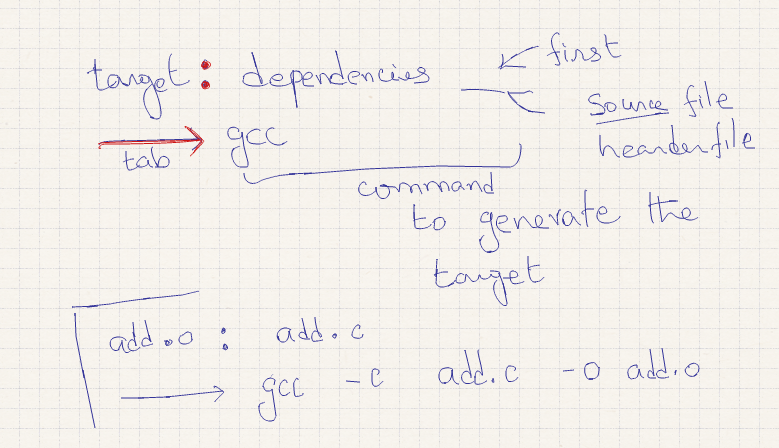 target : dependencies
first
source file
hearderfile
tab
gcc
command
to generate the
target
add.o : add.c
gcc -c add.c -o add.o